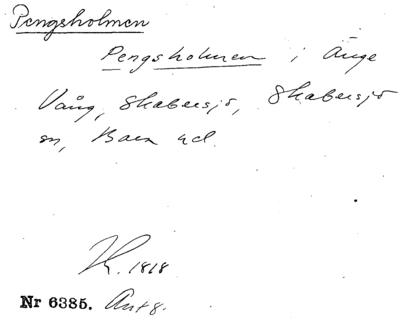 Pengsholmen
Pengsholmen i Ånge
Vång, Skabersjö, Skabersjö
sn, Bara hd.
1818
Nr 6385. Ant 8.